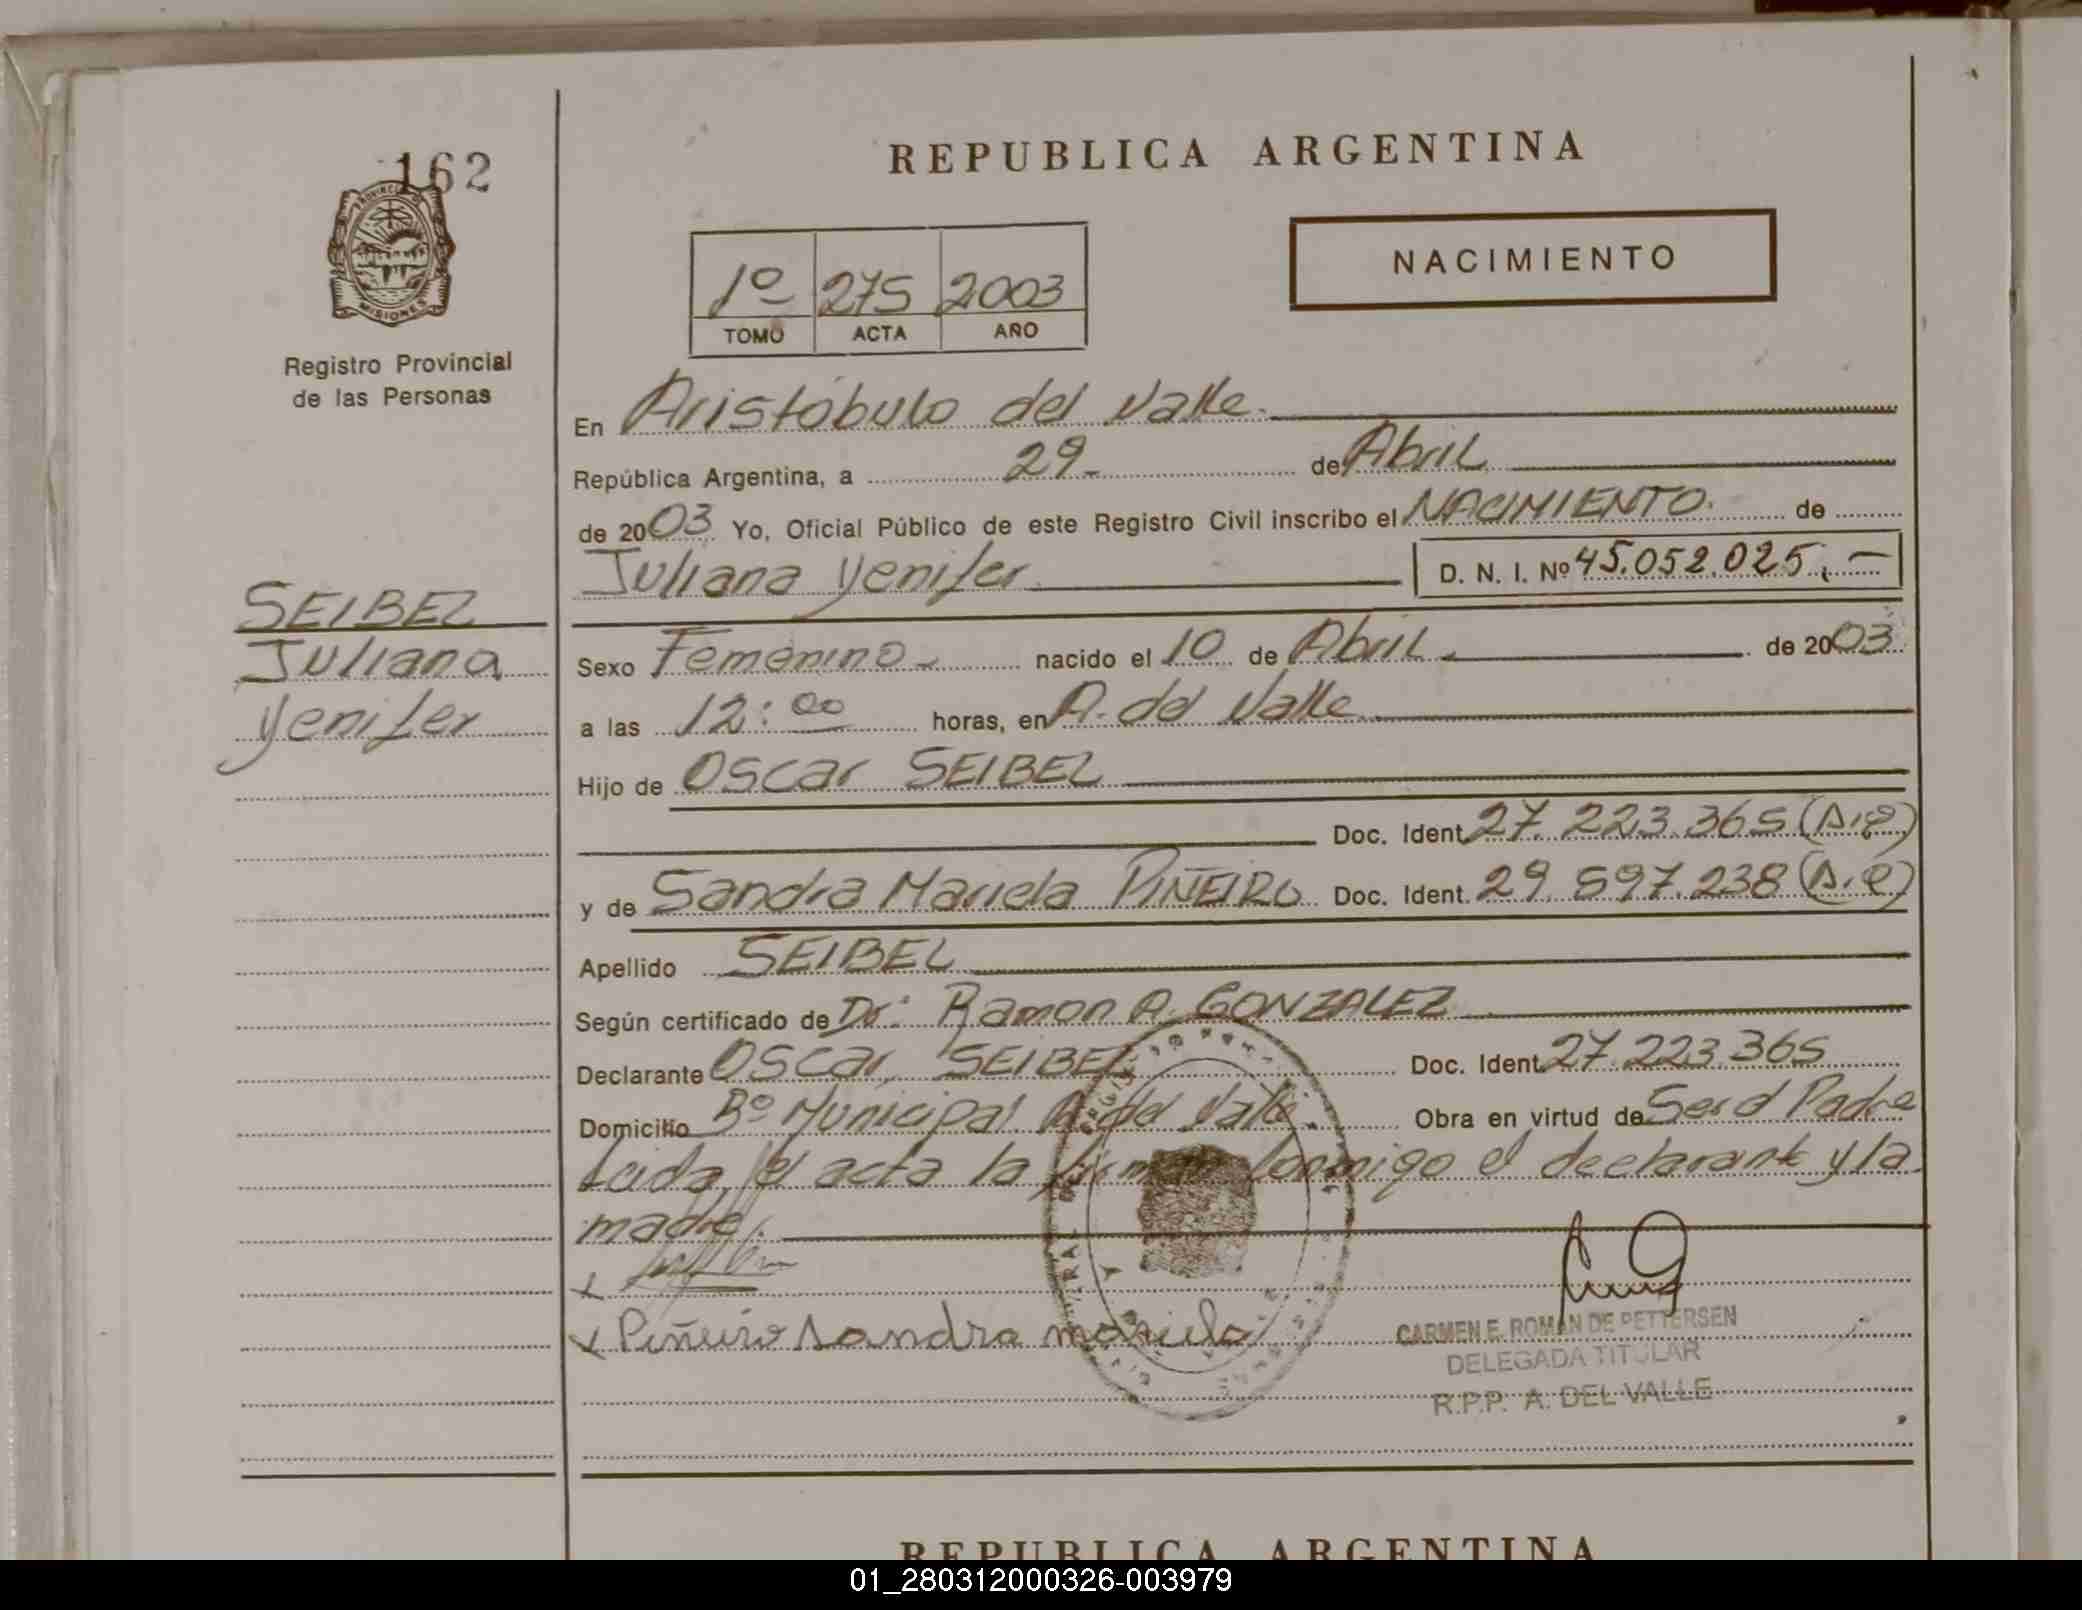 162
PROVINCIA DE
MISIONES
Registro Provincial
de las Personas
SEIBEL
Juliana
Yenifer
REPUBLICA ARGENTINA
NACIMIENTO
1º 275 2003
TOMO ACTA AÑO
En Aristóbulo del Valle.
República Argentina, a 29 de Abril
de 2003 Yo, Oficial Público de este Registro Civil inscribo el NACIMIENTO. de
Juliana Yenifer D. N. I. Nº 45.052.025.-
Sexo Femenino nacido el 10 de Abril de 2003
a las 12:00 horas, en A. del Valle
Hijo de Oscar SEIBEL
Doc. Ident. 27.223.365
y de Sandra Mariela PIÑEIRO Doc. Ident. 29.597.238
Apellido SEIBEL
Según certificado de Dr: Ramon A. GONZALEZ
Declarante Oscar SEIBEL Doc. Ident. 27.223.365
Domicilio Bº Municipal A. del Valle. Obra en virtud de Ser el Padre
Leida el acta la firma conmigo el declarante y la
madre.
x
x Piñeiro sandra mariela
CARMEN E. ROMAN DE PETTERSEN
DELEGADA TITULAR
R.P.P. A. DEL VALLE
REPUBLICA ARGENTINA
01_280312000326-003979